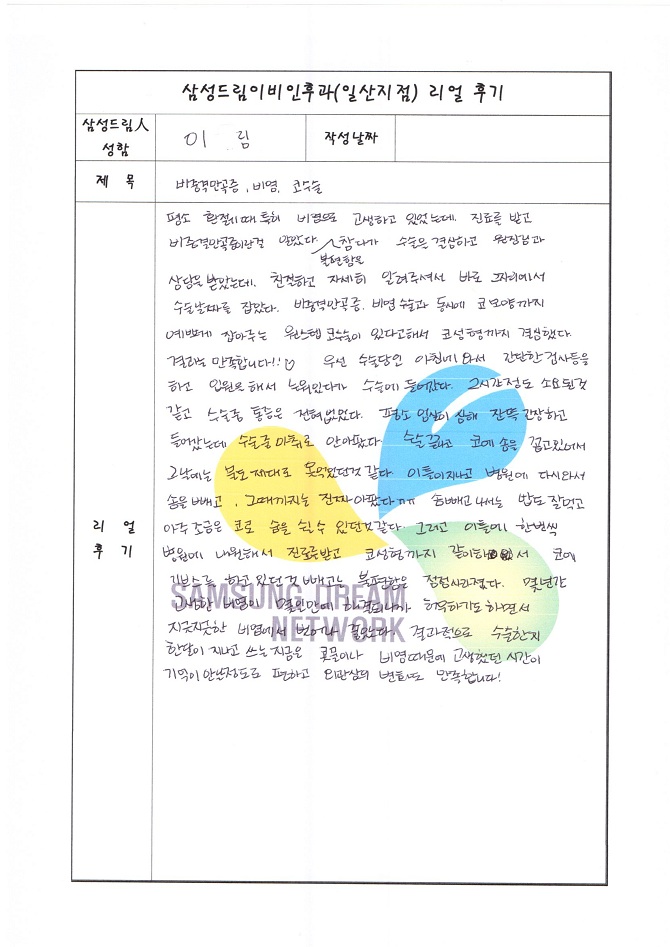 삼성드림이비인후과(일산지점) 리얼 후기
삼성드림人
성함
이 림
작성날짜
제 목
비중격만곡증, 비염, 코수술
평소 환절기때 특히 비염으로 고생하고 있었는데. 진료를 받고
비중격만곡증이란걸 알았다. 참다가 수술은 결심하고 원장님과
불편함을
상담을 받았는데, 친절하고 자세히 알려주셔서 바로 그자리에서
수술날짜를 잡았다. 비중격만곡증, 비염 수술과 동시에 코모양까지
예쁘게 잡아주는 원스텝 코수술이 있다고해서 코성형까지 결심했다.
결과는 만족합니다!! 우선 수술당일 아침에 와서 간단한 검사등을
하고 입원을 해서 누워있다가 수술에 들어갔다. 2시간정도 소요된것
같고 수술중 통증은 전혀없었다. 평소 겁이 심해 잔뜩 긴장하고
들어갔는데 수술중 마취로 안아팠다. 수술 끝나고 코에 솜을 꼽고있어서
그날에는 물도 제대로 못먹었던것 같다. 이틀이지나고 병원에 다시와서
솜을 빼고, 그때까지는 진짜 아팠다ㅠㅠ 솜빼고 나서는 밥도 잘먹고
아주 조금은 코로 숨을 쉴 수 있던것 같다. 그리고 이틀에 한번씩
병원에 내원해서 진료를받고 코성형까지 같이해 서 코에
기브스를 하고 있던걸 빼고는 불편함은 점점사라졌다. 몇년간
비염이 몇일만에 해결되니까 허무하기도 하면서
지긋지긋한 비염에서 벗어나 결과적으로 수술한지
한달이 지나고 쓰는 지금은 콧물이나 비염때문에 고생했던 시간이
기억이 안날정도로 편하고 외관상의 변화도 만족합니다!
리 얼
후 기
SAMSUNG DREAM
NETWORK